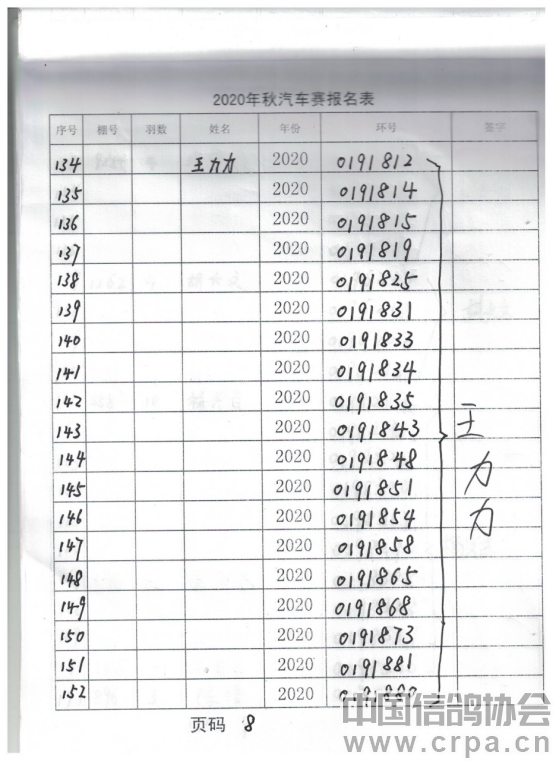 2020年秋汽车赛报名表
序号 棚号 羽数 姓名 年份 环号 签字
134 王力力 2020 0191812
135 2020 0191814
136 2020 0191815
137 2020 0191819
138 2020 0191825
139 2020 0191831
140 2020 0191833
141 2020 0191834
142 2020 0191835
143 2020 0191843 王力力
144 2020 0191848
145 2020 0191851
146 2020 0191854
147 2020 0191858
148 2020 0191865
149 2020 0191868
150 2020 0191873
151 2020 0191881
152 2020
页码 8
中国信鸽协会
www.crpa.cn